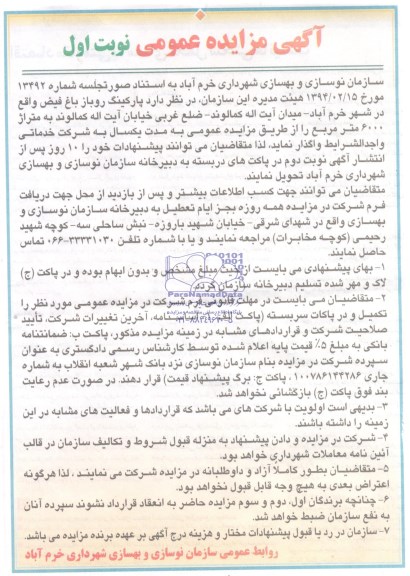 آگهی مزایده عمومی نوبت اول
سازمان نوسازی و بهسازی شهرداری خرم آباد به استناد صورتجلسه شماره ۱۳۴۹۲
مورخ ۱۳۹۴/۰۲/۱۵ هیئت مدیره این سازمان، در نظر دارد پارکینگ روباز باغ فیض واقع
در شهر خرم آباد-میدان آیت اله کمالوند- ضلع غربی خیابان آیت اله کمالوند به متراژ
۶۰۰۰ متر مربع را از طریق مزایده عمومی به مدت یکسال به شرکت خدماتی
واجدالشرایط واگذار نماید، لذا متقاضیان می توانند پیشنهادات خود را ۱۰ روز پس از
انتشار آگهی نوبت دوم در پاکت های دربسته به دبیرخانه سازمان نوسازی و بهسازی
شهرداری خرم آباد تحویل نمایند.
متقاضیان می توانند جهت کسب اطلاعات بیشتر و پس از بازدید از محل جهت دریافت
فرم شرکت در مزایده همه روزه بجز ایام تعطیل به دبیرخانه سازمان نوسازی و
بهسازی واقع در شهدای شرقی- خیابان شهید باروزه- نبش ساحلی سه- کوچه شهید
رحیمی (کوچه مخابرات) مراجعه نمایند و یا با شماره تلفن ۳۳۳۳۱۰۳۰-۰۶۶ تماس
حاصل نمایند.
۱- بهای پیشنهادی می بایست از حیث مبلغ مشخص و بدون ابهام بوده و در پاکت (ج)
لاک و مهر شده تسلیم دبیرخانه سازمان گردد.
۲- متقاضیان می بایست در مهلت قانونی فرم شرکت در مزایده عمومی مورد نظر را
تکمیل و در پاکات سربسته (پاکت الف: اساسنامه، آخرین تغییرات شرکت، تأیید
صلاحیت شرکت و قراردادهای مشابه در زمینه مزایده مذکور، پاکت ب: ضمانتنامه
بانکی به مبلغ ۵٪ قیمت پایه اعلام شده توسط کارشناس رسمی دادگستری به عنوان
سپرده شرکت در مزایده بنام سازمان نوسازی نزد بانک شهر شعبه انقلاب به شماره
جاری ۱۰۰۷۸۶۱۴۴۲۸۶ ، پاکت ج: برگ پیشنهاد قیمت) قرار دهند. در صورت عدم رعایت
بند فوق پاکت (ج) بازگشائی نخواهد شد.
۳- بدیهی است اولویت با شرکت های می باشد که قراردادها و فعالیت های مشابه در این
زمینه را داشته باشند.
۴- شرکت در مزایده و دادن پیشنهاد به منزله قبول شروط و تکالیف سازمان در قالب
آئین نامه معاملات شهرداری خواهد بود.
۵- متقاضیان بطور کاملاً آزاد و داوطلبانه در مزایده شرکت می نمایند . لذا هرگونه
اعتراض بعدی به هیچ وجه قابل قبول نخواهد بود.
۶- چنانچه برندگان اول، دوم و سوم مزایده حاضر به انعقاد قرارداد نشوند سپرده آنان
به نفع سازمان ضبط خواهد شد.
۷- سازمان در رد یا قبول پیشنهادات مختار و هزینه درج آگهی بر عهده برنده مزایده می باشد.
روابط عمومی سازمان نوسازی و بهسازی شهرداری خرم آباد